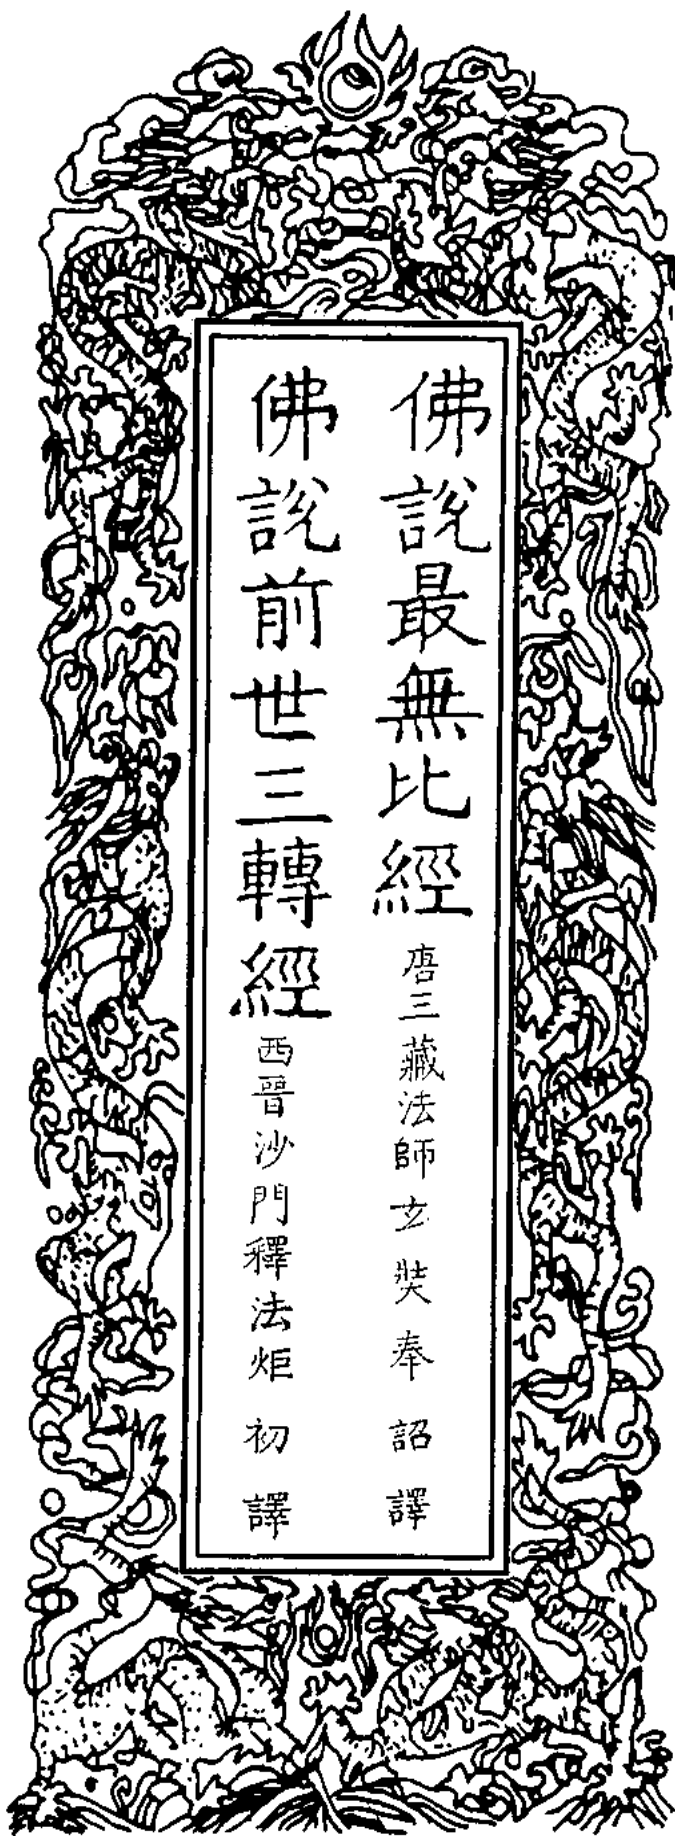 佛說最無比經 唐三藏法師玄奘奉 詔譯
佛說前世三轉經 西晉沙門釋法炬 初譯